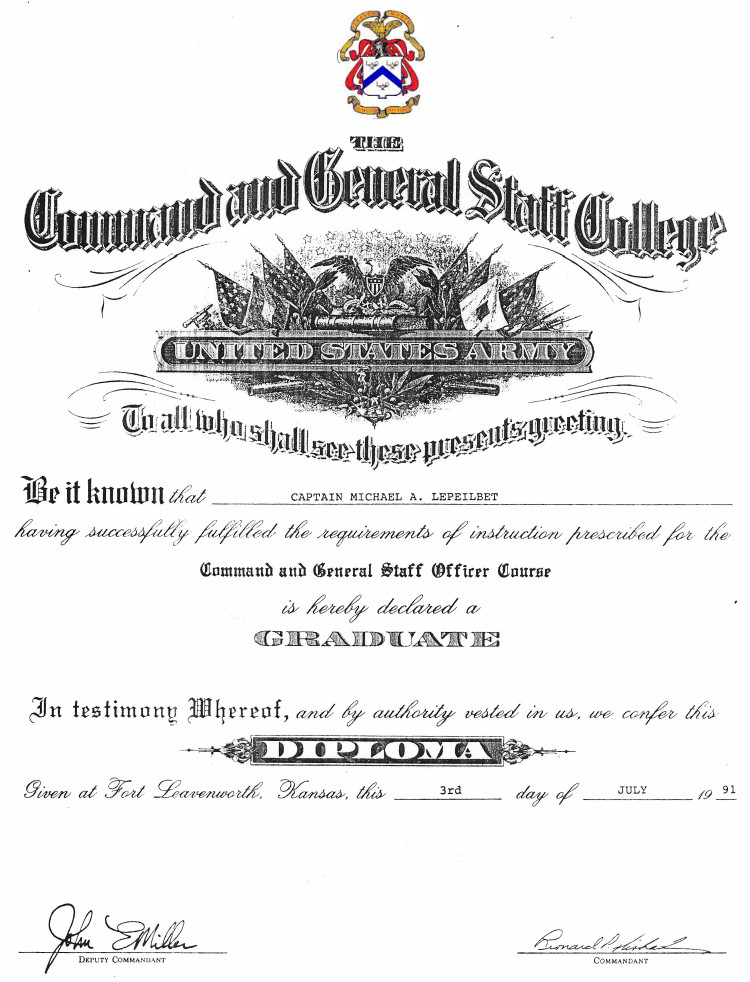 THE
Command and General Staff College
UNITED STATES ARMY
To all who shall see these presents greeting,
Be it known that CAPTAIN MICHAEL A. LEPEILBET
having successfully fulfilled the requirements of instruction prescribed for the
Command and General Staff Officer Course
is hereby declared a
GRADUATE
In testimony Whereof, and by authority vested in us, we confer this
DIPLOMA
Given at Fort Leavenworth, Kansas, this 3rd day of JULY 19 91
John E Miller
DEPUTY COMMANDANT
COMMANDANT